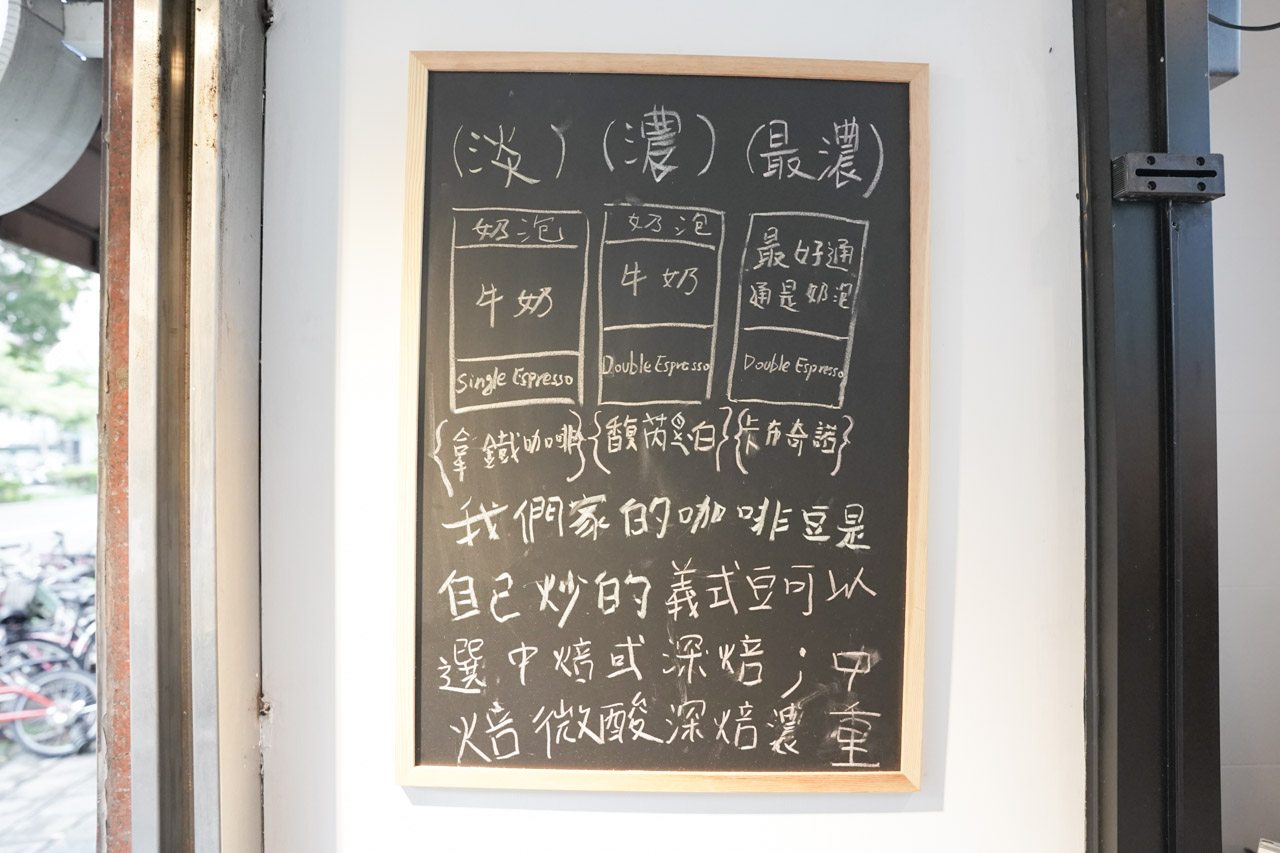 (淡) (濃) (最濃)
奶泡
牛奶
Single Espresso
奶泡
牛奶
Double Espresso
最好通
通是奶泡
Double Espresso
{拿鐵咖啡} {馥芮白} {卡布奇諾}
我們家的咖啡豆是
自己炒的義式豆可以
選中焙或深焙；中
焙微酸深焙濃重